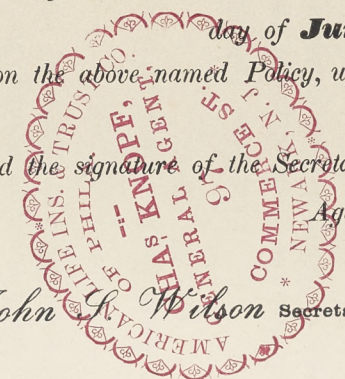 day of Jun
on the above named Policy, u
d the signature of the Secreta
Ag
John S. Wilson Secreta
AMERICAN LIFE INS. & TRUST CO.
OF PHILA.
CHAS. KNIPE,
GENERAL AGENT,
97
COMMERCE ST.
NEWARK, N. J.